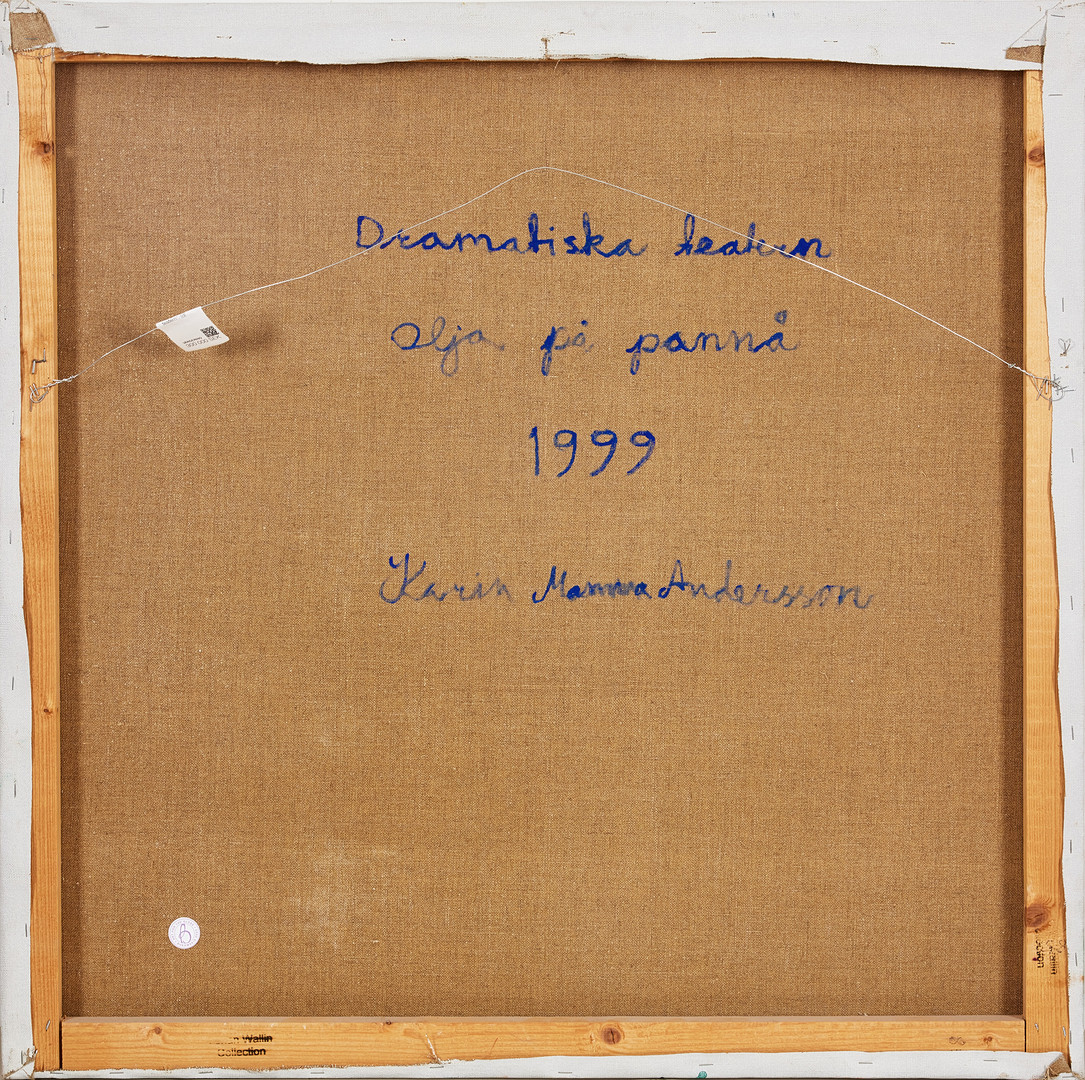 Dramatiska teatern
olja på pannå
1999
Karin Mamma Andersson
6
Wallin
Collection